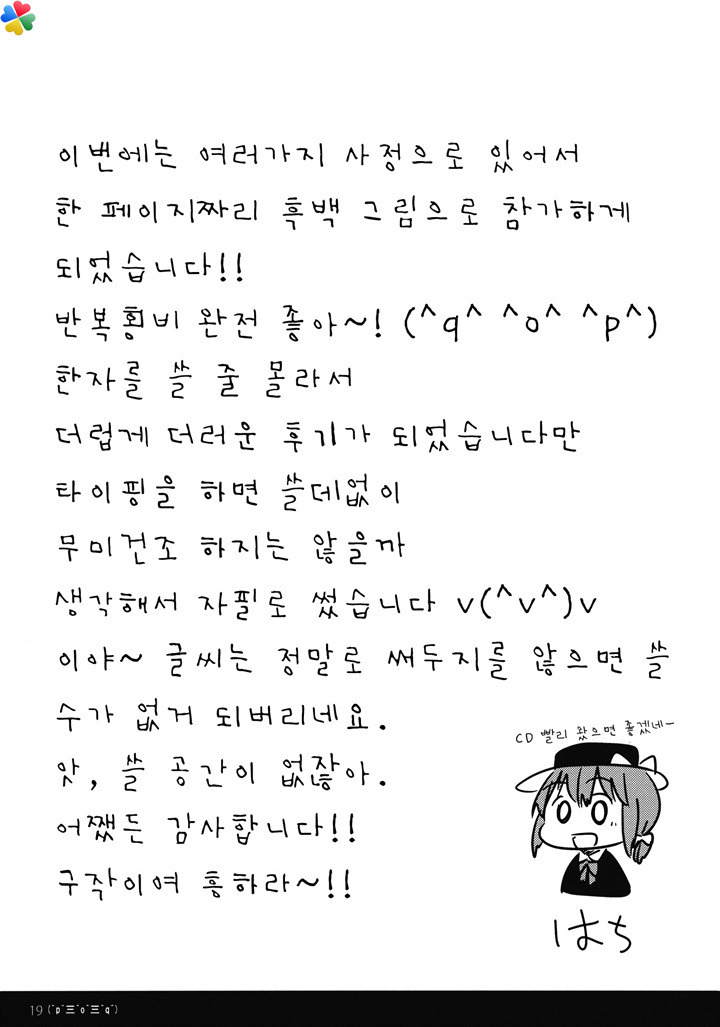 이번에는 여러가지 사정으로 있어서
한 페이지짜리 흑백 그림으로 참가하게
되었습니다!!
반복횡비 완전 좋아~! (^q^ ^o^ ^p^)
한자를 쓸 줄 몰라서
더럽게 더러운 후기가 되었습니다만
타이핑을 하면 쓸데없이
무미건조 하지는 않을까
생각해서 자필로 썼습니다 v(^v^)v
이야~ 글씨는 정말로 써두지를 않으면 쓸
수가 없거 되버리네요.
앗, 쓸 공간이 없잖아.
어쨌든 감사합니다!!
구작이여 흥하라~!!
CD 빨리 왔으면 좋겠네~
はち
19 (゚p゚三゚o゚三゚q゚)